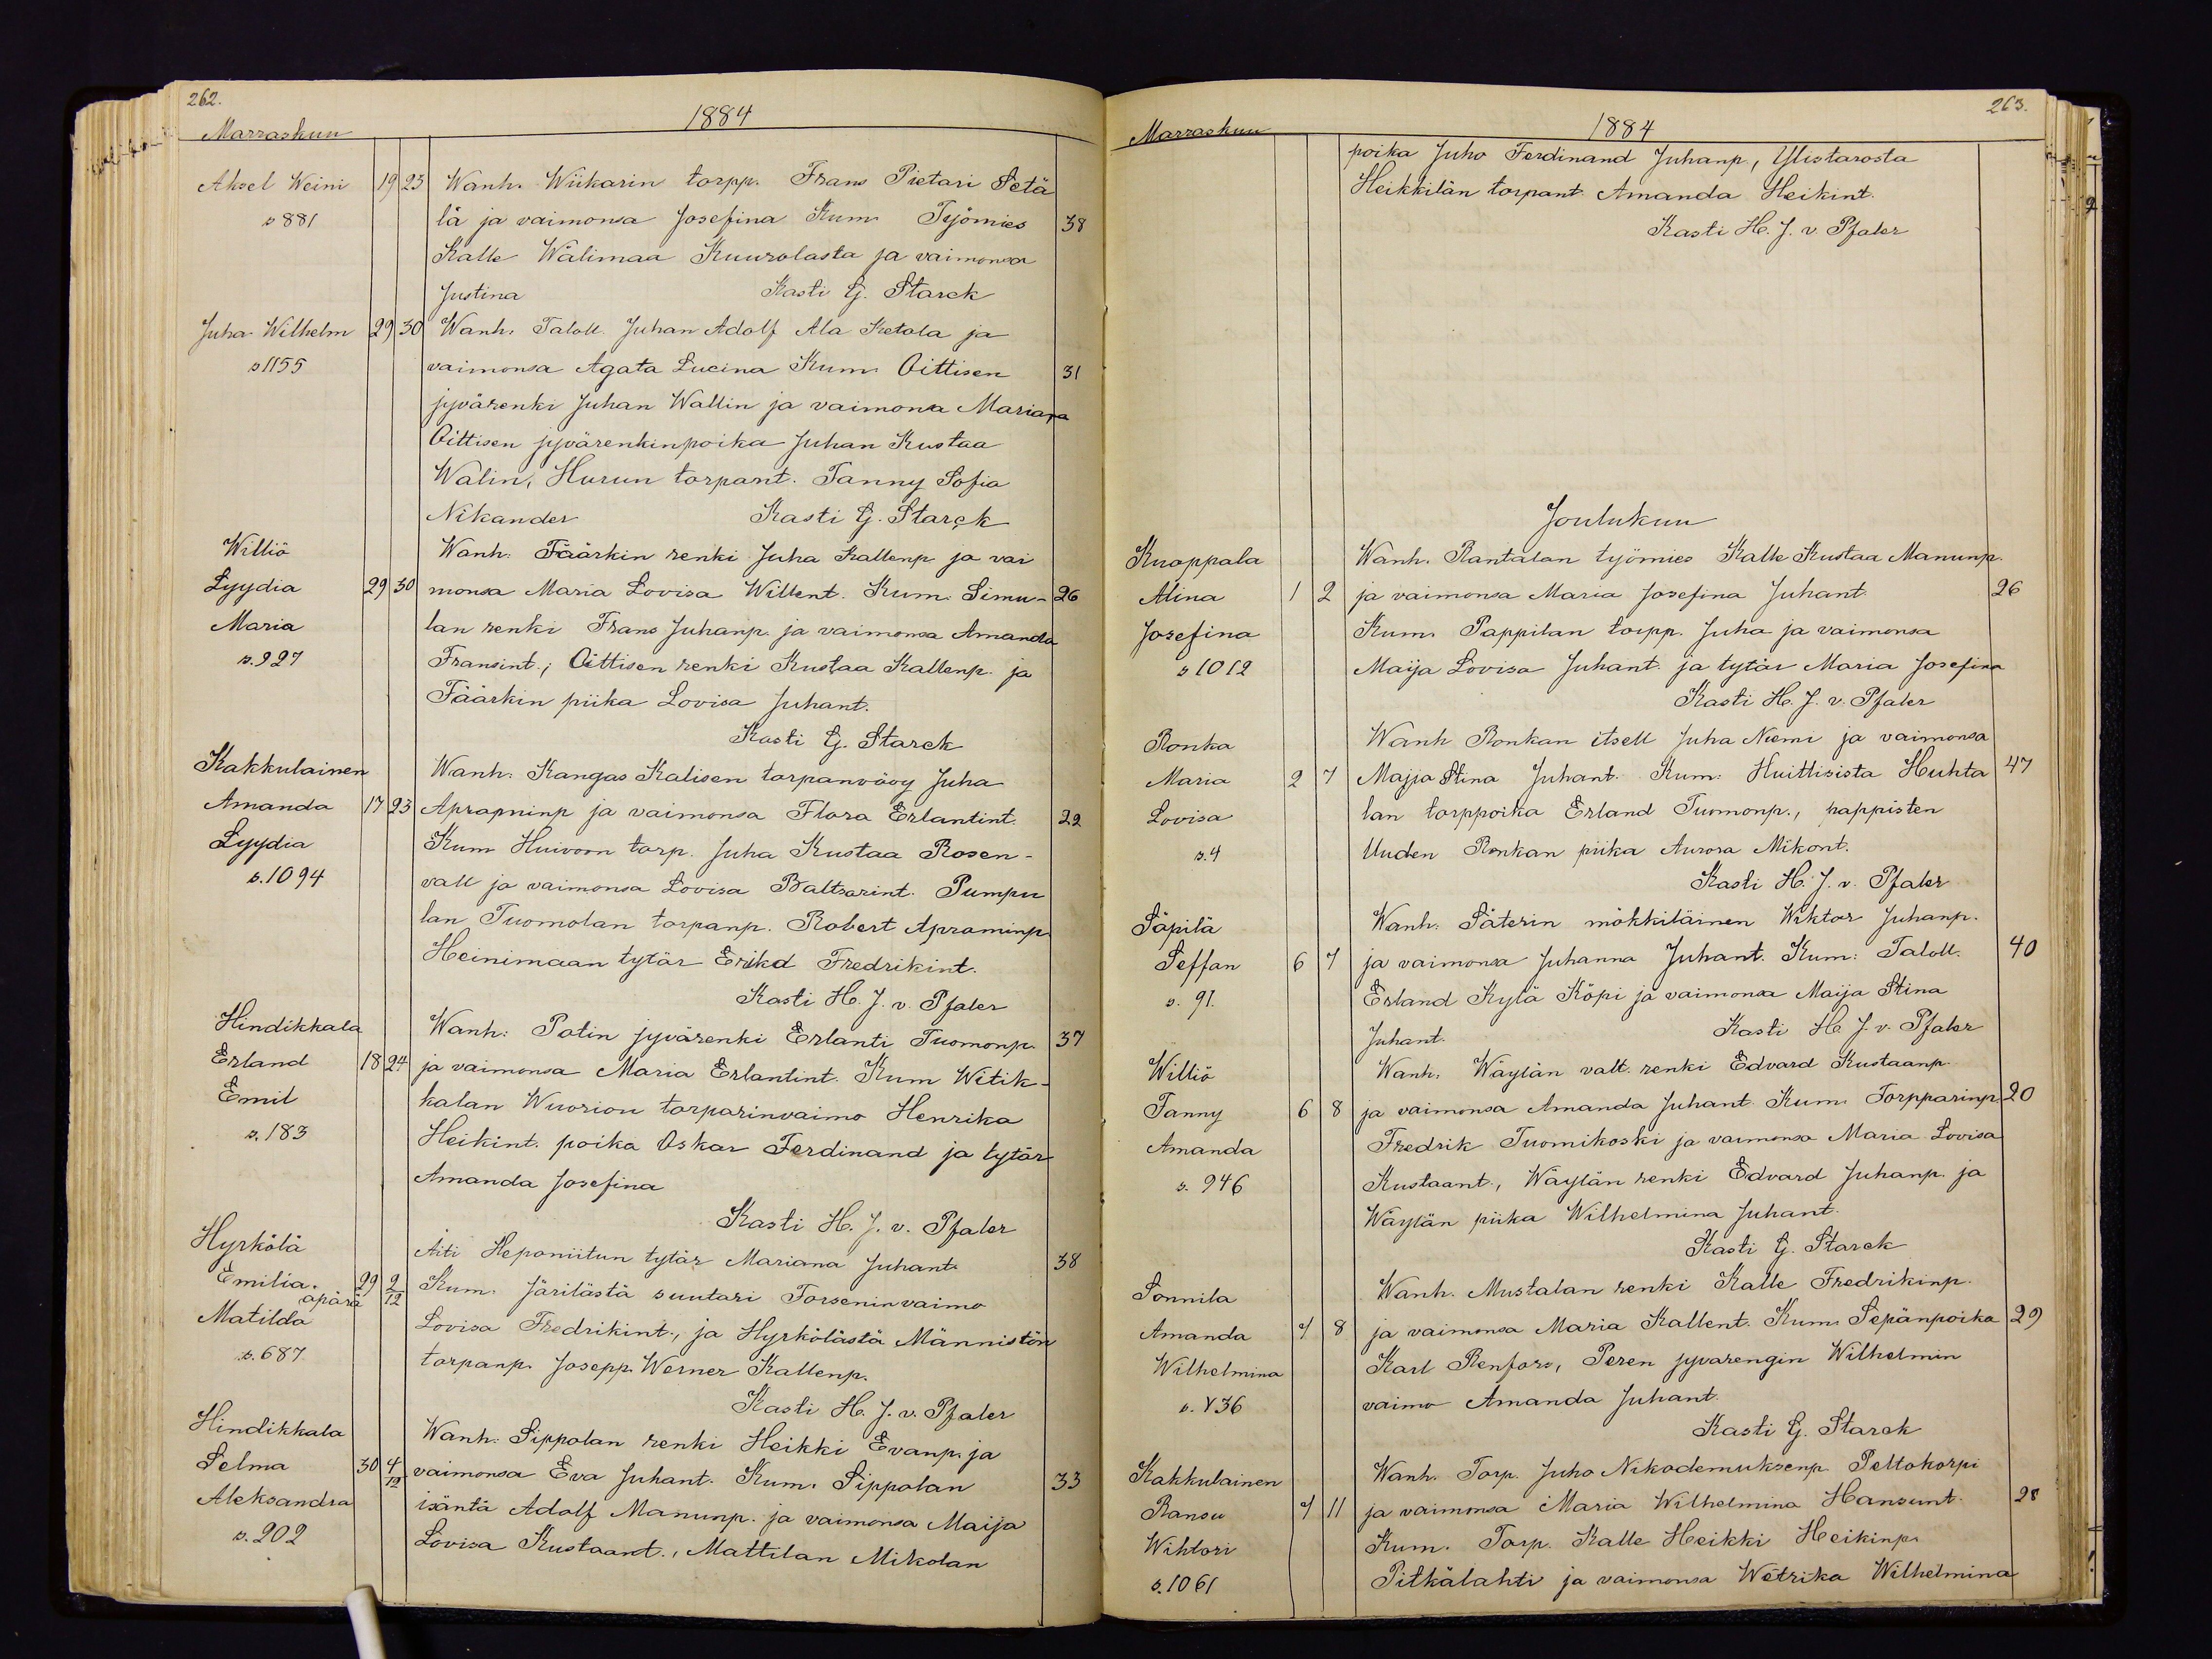 262.
Marraskuu
1884
Aksel Weini 19 23 Wanh. Wiikarin torpp. Frans Pietari Setä
s 881 lä ja vaimonsa Josefina Kum. Työmies 38
Kalle Wälimaa Kuurolasta ja vaimonsa
Justina Kasti G. Starck
Juha Wilhelm 29 30 Wanh. Taloll. Juhan Adolf Ala Ketola ja
s 1155 vaimonsa Agata Lucina Kum. Oittisen 31
jyvärenki Juhan Wallin ja vaimonsa Mariana
Oittisen jyvärenkinpoika Juhan Kustaa
Walin, Hurun torpant. Fanny Sofia
Nikander Kasti G. Starck
Williö Wanh. Täärkin renki Juha Kallenp. ja vai
Lyydia 29 30 monsa Maria Lovisa Willent. Kum. Simu- 26
Maria lan renki Frans Juhanp. ja vaimonsa Amanda
s. 927 Fransint.; Oittisen renki Kustaa Kallenp. ja
Täärkin piika Lovisa Juhant.
Kasti G. Starck
Kakkulainen Wanh. Kangas Kalisen torpanvävy Juha
Amanda 17 23 Apramninp ja vaimonsa Flora Erlantint. 22
Lyydia Kum Huivoon torp. Juha Kustaa Rosen-
s. 1094 vall ja vaimonsa Lovisa Baltsarint. Pumpu
lan Tuomolan torpanp. Robert Apraminp
Heinimaan tytär Erika Fredrikint.
Kasti H. J. v. Pfaler
Hindikkala Wanh: Potin jyvärenki Erlanti Tuomonp. 37
Erland 18 24 ja vaimonsa Maria Erlantint. Kum Witik-
Emil kalan Wuorion torparinvaimo Henrika
s. 183 Heikint. poika Oskar Ferdinand ja tytär
Amanda Josefina
Kasti H. J. v. Pfaler
Hyrkölä Äiti Heponiitun tytär Mariana Juhant. 38
Emilia. apärä 29 2/12 Kum. Järilästä suutari Forseninvaimo
Matilda Lovisa Fredrikint., ja Hyrkölästä Männistön
s. 687 torpanp. Josepp. Werner Kallenp.
Kasti H. J. v. Pfaler
Hindikkala Wanh: Sippolan renki Heikki Evanp. ja
Selma 30 4/12 vaimonsa Eva Juhant. Kum. Sippolan 33
Aleksandra isäntä Adolf Manunp. ja vaimonsa Maija
s. 202 Lovisa Kustaant., Mattilan Mikolan
263.
Marraskuu
1884
poika Juho Ferdinand Juhanp., Ylistarosta
Heikkilän torpant. Amanda Heikint.
Kasti H. J. v. Pfaler
Joulukuu
Knoppala Wanh. Rantalan työmies Kalle Kustaa Manunp.
Alina 1 2 ja vaimonsa Maria Josefina Juhant. 26
Josefina Kum. Pappilan torpp. Juha ja vaimonsa
s 1012 Maija Lovisa Juhant. ja tytär Maria Josefina
Kasti H. J. v. Pfaler
Ronka Wanh Ronkan itsell Juha Niemi ja vaimonsa
Maria 2 7 Maija Stina Juhant. Kum: Huittisista Huhta 47
Lovisa lan torppoika Erland Tuomonp., pappisten
s. 4 Uuden Ronkan piika Aurora Mikont.
Kasti H. J. v. Pfaler
Säpilä Wanh: Säterin mökkiläinen Wiktor Juhanp.
Seffan 6 7 ja vaimonsa Juhanna Juhant. Kum: Taloll. 40
s. 91. Erland Kylä Köpi ja vaimonsa Maija Stina
Juhant. Kasti H. J. v. Pfaler
Williö Wanh. Wäylän valt. renki Edvard Kustaanp.
Fanny 6 8 ja vaimonsa Amanda Juhant. Kum. Torpparinp 20
Amanda Fredrik Tuomikoski ja vaimonsa Maria Lovisa
s. 946 Kustaant., Wäylän renki Edvard Juhanp. ja
Wäylän piika Wilhelmina Juhant.
Kasti G. Starck
Sonnila Wanh. Mustalan renki Kalle Fredrikinp.
Amanda 7 8 ja vaimonsa Maria Kallent. Kum. Sepänpoika 29
Wilhelmina Karl Renfors, Peren jyvarengin Wilhelmin
s. 836 vaimo Amanda Juhant.
Kasti G. Starck
Kakkulainen Wanh. Torp. Juho Nikodemuksenp. Peltokorpi
Ransu 7 11 ja vaimonsa Maria Wilhelmina Hansunt. 28
Wihtori Kum. Torp. Kalle Heikki Heikinp.
s. 1061 Pitkälahti ja vaimonsa Wetrika Wilhelmina